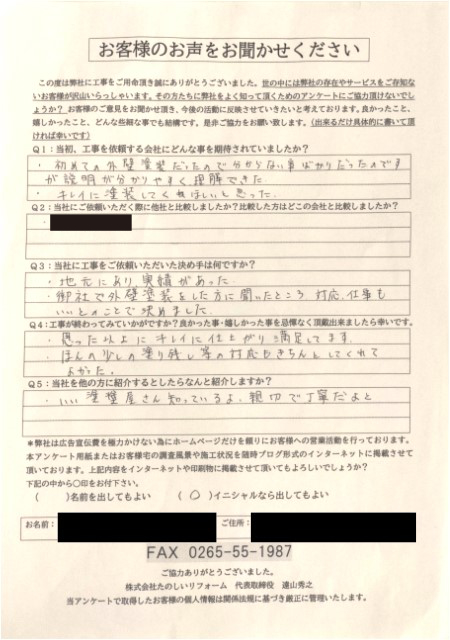 お客様のお声をお聞かせください
この度は弊社に工事をご用命頂き誠にありがとうございました。世の中には弊社の存在やサービスをご存知
ないお客様が沢山いらっしゃいます。その方たちに弊社をよく知って頂くためのアンケートにご協力頂けないでし
ょうか？ お客様のご意見をお聞かせ頂き、今後の活動に反映させていきたいと考えております。良かったこと、
嬉しかったこと、どんな些細な事でも結構です。是非ご協力をお願い致します。（出来るだけ具体的に書いて頂
ければ幸いです）
Q1：当初、工事を依頼する会社にどんな事を期待されていましたか？
・初めての外壁塗装だったので分からない事ばかりだったのです
が説明が分かりやすく理解できた
・キレイに塗装してくれればいいと思った
Q2：当社にご依頼いただく際に他社と比較しましたか？比較した方はどこの会社と比較しましたか？
Q3：当社に工事をご依頼いただいた決め手は何ですか？
・地元にあり実績があった
・御社で外壁塗装をした方に聞いたところ 対応、仕事も
いいとのことで決めました
Q4：工事が終わってみていかがですか？良かった事・嬉しかった事を忌憚なく頂戴出来ましたら幸いです。
・思った以上にキレイに仕上がり満足してます
・ほんの少しの塗り残し等の対応もきちんとしてくれて
よかった。
Q5：当社を他の方に紹介するとしたらなんと紹介しますか？
・いい塗壁屋さん知っているよ、親切で丁寧だよと
＊弊社は広告宣伝費を極力かけない為にホームページだけを頼りにお客様への営業活動を行っております。
本アンケート用紙またはお客様宅の調査風景や施工状況を随時ブログ形式のインターネットに掲載させて
頂いております。上記内容をインターネットや印刷物に掲載させて頂いてもよろしいでしょうか？
下記の中から〇印をお付下さい。
（ ）名前を出してもよい （ 〇 ）イニシャルなら出してもよい
お名前： ご住所：
FAX 0265-55-1987
ご協力ありがとうございました。
株式会社たのしいリフォーム 代表取締役 遠山秀之
当アンケートで取得したお客様の個人情報は関係法規に基づき厳正に管理いたします。